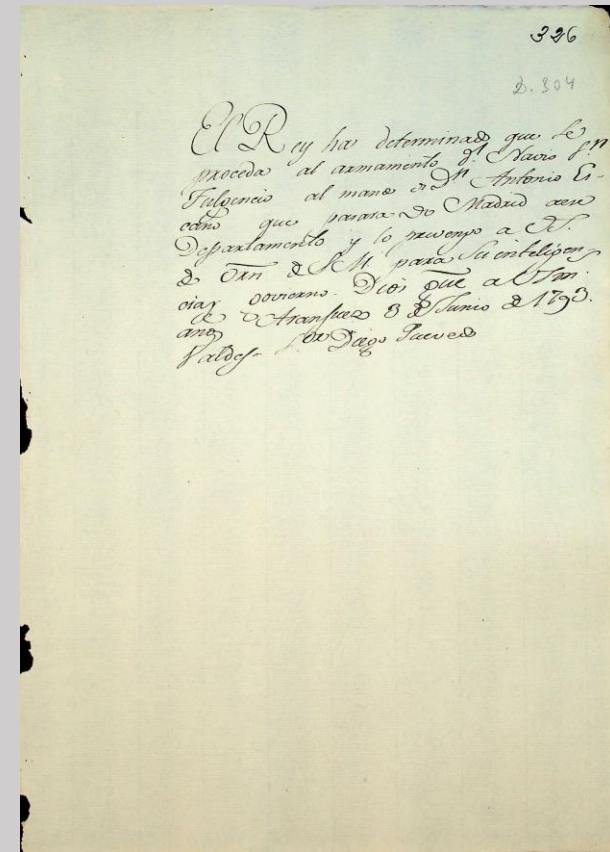 326
D. 304
El Rey ha determinado que se
proceda al armamento dl Navio Sn
Fulgencio al mando de Dn Antonio Es
caño que pasara de Madrid a ese
Departamento y lo prevengo a V.S.
de Orn de S.M. para su inteligen
cia y govierno. Dios gue a V.S. m.
a. Aranjuez 3 de Junio de 1793.
Valdes. Sor Diego